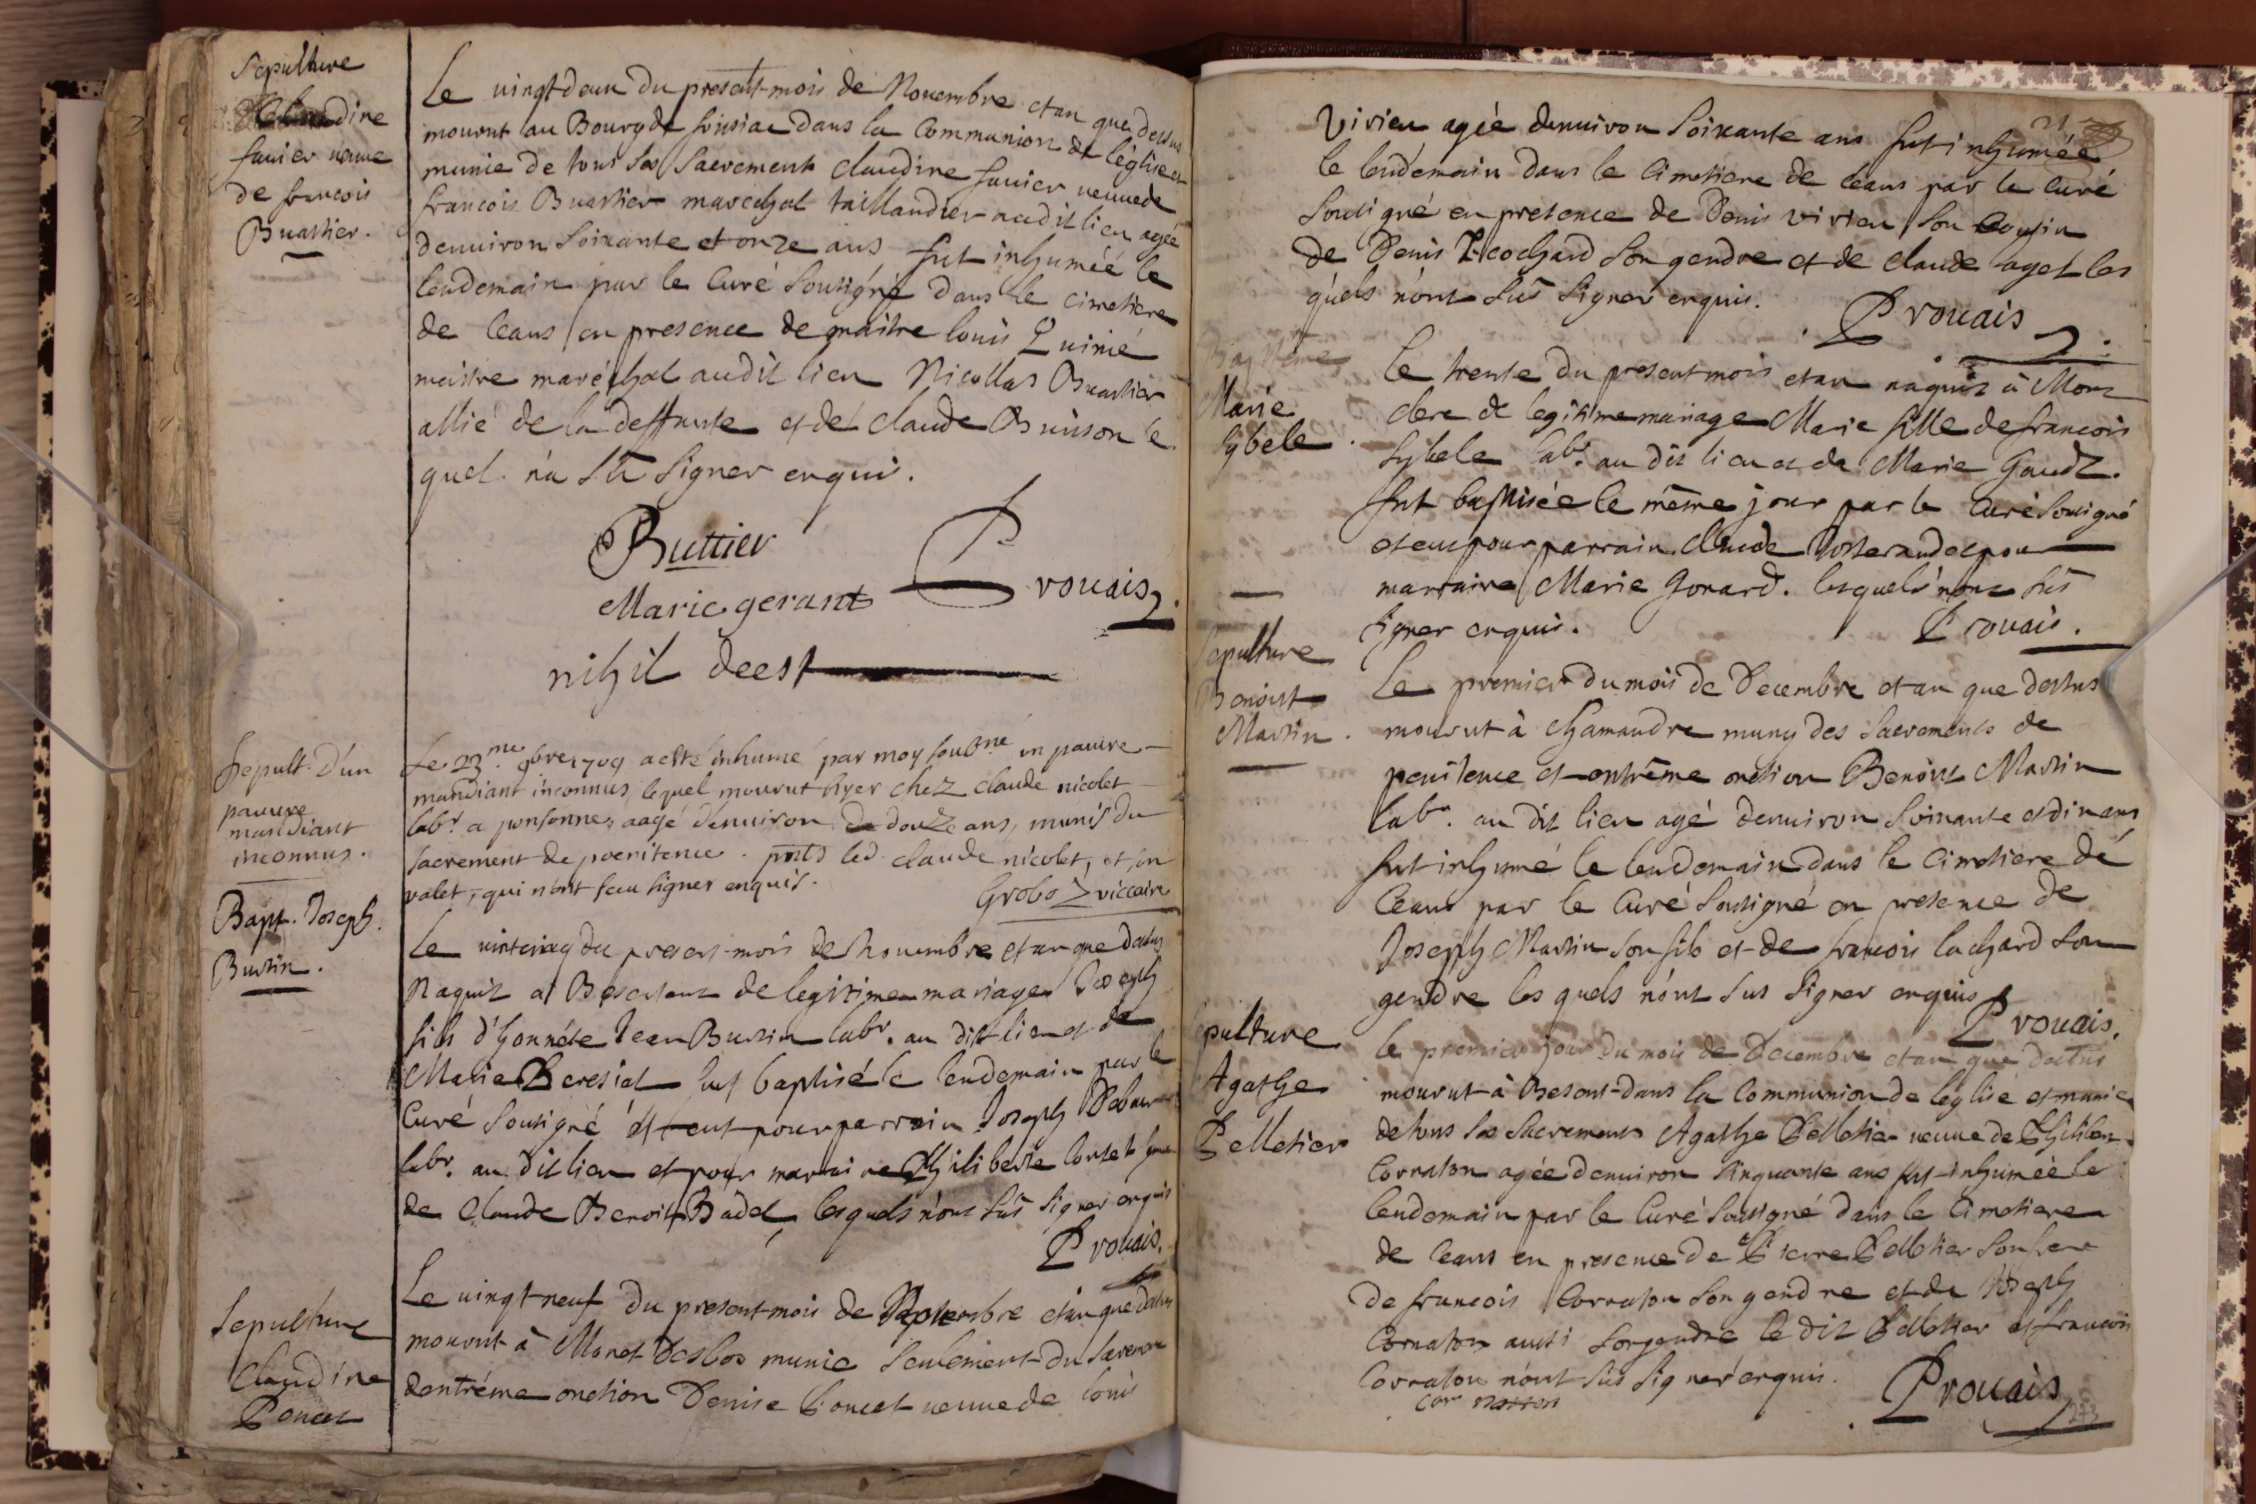 Sepulture
Claudine
favier veuve
de francois
Buattier.
Le vingt deux du present mois de Novembre et an que dessus
mourut au Bourg de foissiac dans la Communion de l'église et
munie de tous les sacrements claudine favier veuve de
francois Buattier marechal taillandier audit lieu agéé
denuiron soixante et onze ans fut inhuméé le
lendemain par le Curé soussigné dans le cimetiere
de ceans en presence de maitre louis
maitre maréchal audit lieu Nicollas Buattier
allié de la deffunte et de claude Buisson le
quel n'a sü signer enquis.
Buttier
Marie gerant
Provais
nihil deest
Sepult. d'un
pauvre
mandiant
inconnus.
Le 23.me 9bre 1709 a esté inhumé par moy soubné un pauvre
mandiant inconnus lequel mourut hyer chez claude nicolet
labr. a ponsonne, aagé denuiron de douze ans, munis du
sacrement de poenitence. pnts led. claude nicolet, et son
valet, qui n'ont sceu signer enquis.
Groboz viccaire
Bapt. Joseph.
Burtin.
Le vintcinq du present mois de Novembre et an que dessus
Naquit a de legitime mariage Joseph
fils d'honnéte Jean Burtin labr. au dist lieu et de
Marie fut baptisé le lendemain par le
Curé soussigné et eut pour parrain Joseph
labr. au dit lieu et pour marraine Philiberte
de claude Benoit Badel, lesquels n'ont süs signer enquis
Provais.
Sepulture
Claudine
Poncet
Le vingt neuf du present mois de et an que dessus
mourut à munie seulement du sacrement
dextréme onction Denise Poncet veuve de louis
21
Vivien agéé denuiron soixante ans fut inhuméé
le lendemain dans le Cimetiere de ceans par le Curé
soussigné en presence de Denis vivien son cousin
de Denis son gendre et de claude les
quels n'ont süs signer enquis.
Provais
Baptéme
Marie
Sybele
Le trente du present mois et an naquit à
de legitime mariage Marie fille de francois
Sybele labr. au dit lieu et de Marie
fut baptisée le méme jour par le Curé soussigné
et eut pour parrain claude et pour
marraine Marie Gonard. lesquels n'ont süs
signer enquis.
Provais.
Sepulture
Benoist
Martin.
Le premier du mois de Decembre et an que dessus
mourut à chamandre muny des sacrements de
penitence et extréme onction Benoist Martin
labr. au dit lieu agé denuiron soixante et dix ans
fut inhumé le lendemain dans le cimetiere de
Ceans par le Curé soussigné en presence de
Joseph Martin son fils et de francois lachard son
gendre les quels n'ont sus signer enquis
Provais.
Sepulture
Agathe
Pelletier
le premier jour du mois de Decembre et an que dessus
mourut à dans la Communion de l'église et munie
de tous les sacrements Agathe Pelletier veuve de
Corraton agée denuiron cinquante ans fut inhuméé le
lendemain par le Curé soussigné dans le Cimetiere
de Ceans en presence de Pierre Pelletier son frere
de francois Corraton son gendre et de Joseph
Cornaton aussi son gendre le dit Pelletier et francois
Corraton n'ont sus signer enquis.
Provais